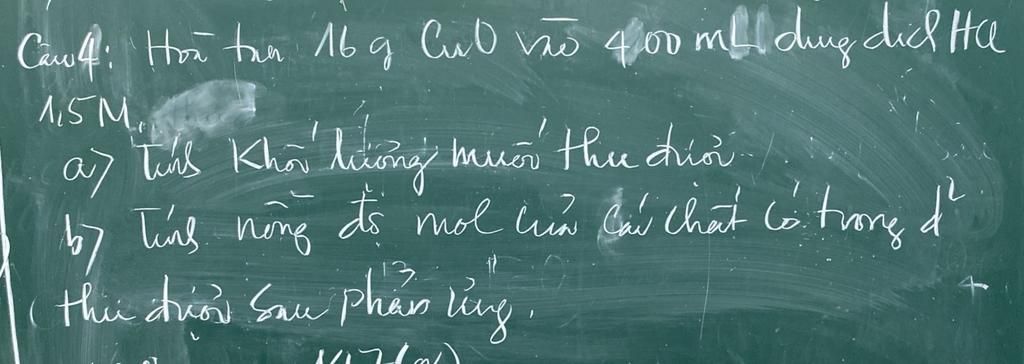 Câu 4: Hoà tan 16 g CuO vào 400 mL dung dịch HCl
1,5 M.
a) Tính khối lượng muối thu được
b) Tính nồng độ mol của các chất có trong d²
thu được sau phản ứng.